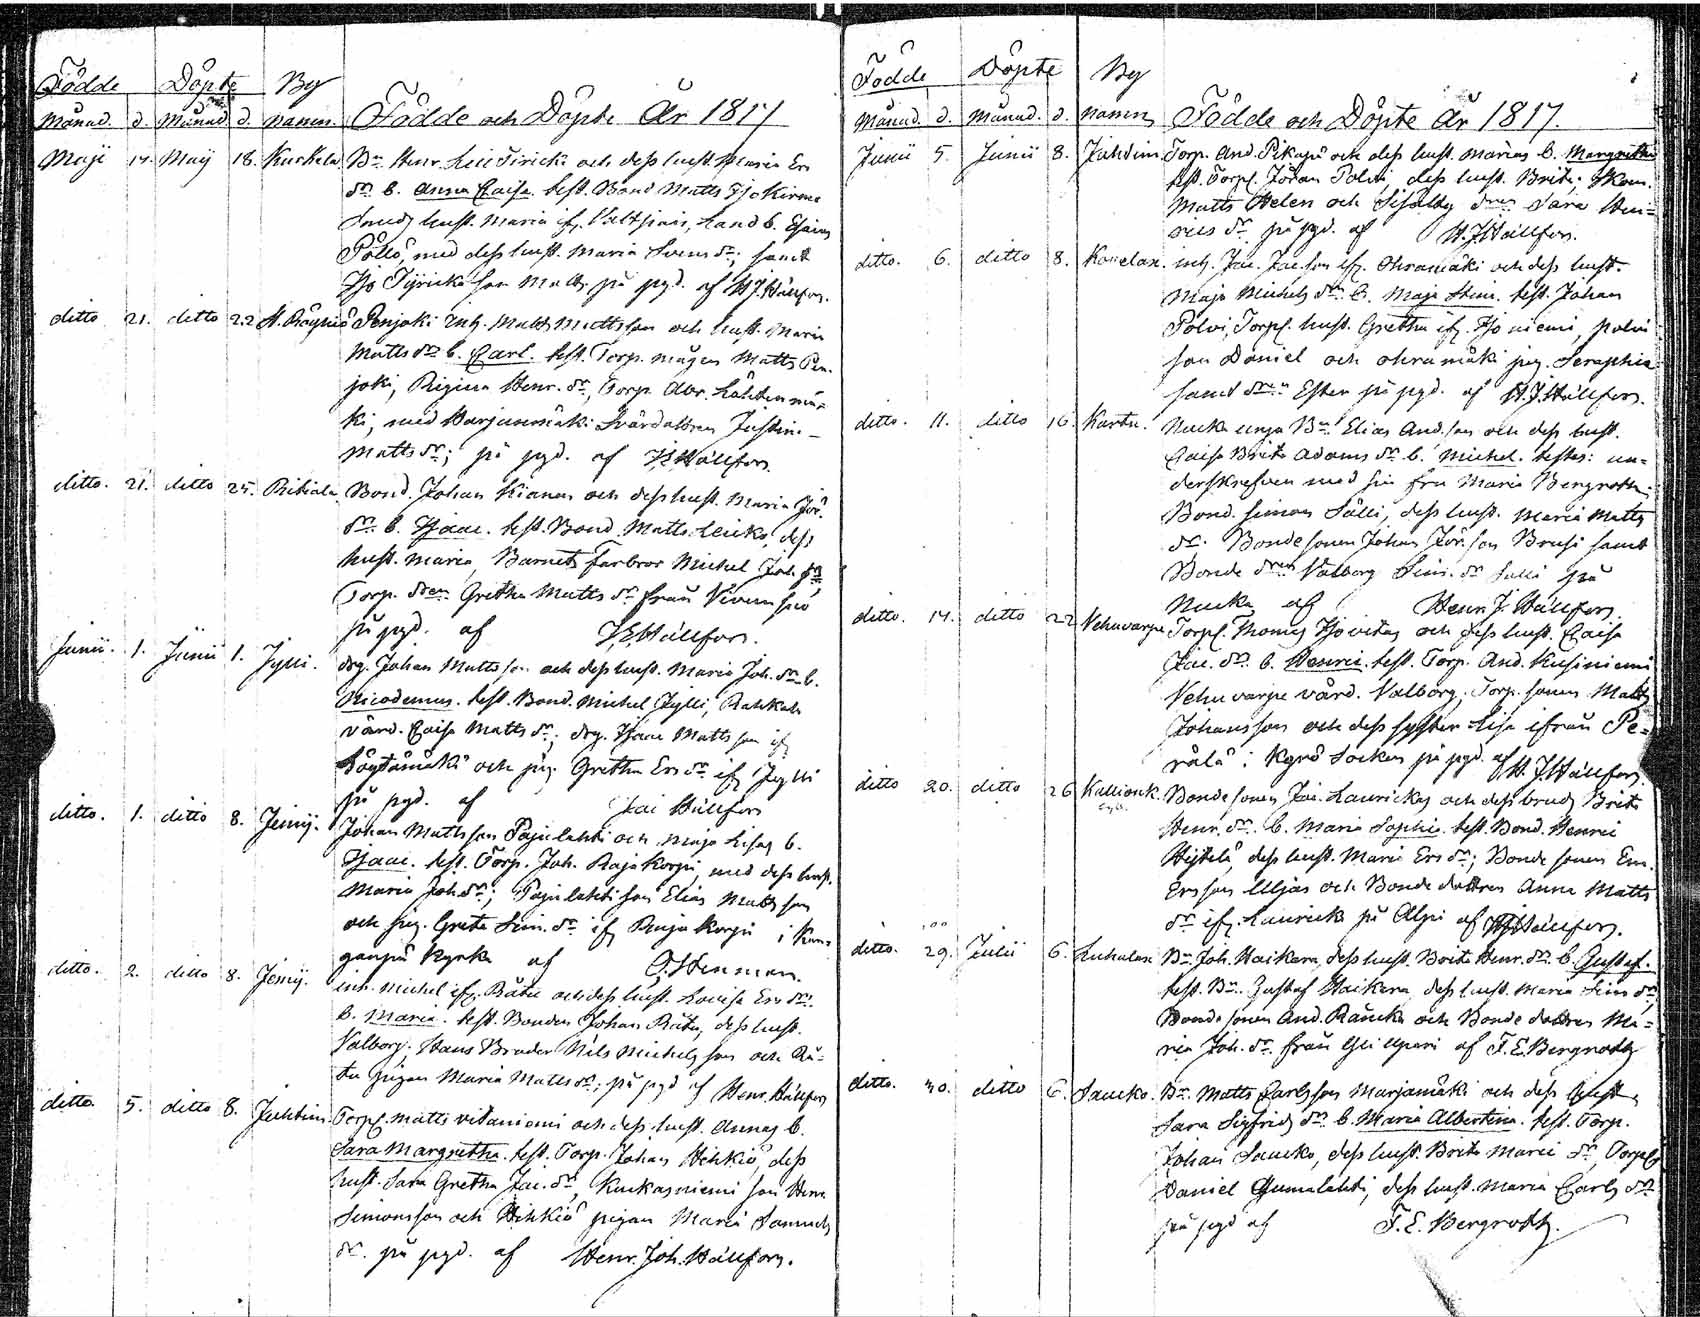 Födde Döpte By
Månad. d. Månad d. namn. Födde och Döpte År 1817
Maji 17. Maij 18. Kuckela Bn Henr. och dess hust. Maria Ers
dr b. Anna Caisa. test. Bond Matts
hust. Maria ifr. Land b. Esaias
Pöllö, med dess hust. Maria Svens dr; samt
son Matts på pgd. af H J Hällfors.
ditto 21. ditto 22 Penjoki Inh. Matts Mattsson och hust. Maria
Matts dr b. Carl. test. Torp. mågen Matts Pen-
joki, Regina Henr. dr, Torp. Abr. Lähtenmä-
ki, med Harjunmäki Svärdottren Justina
Matts dr; på pgd. af H Hällfors.
ditto. 21. ditto 25. Rihiala Bond. Johan Kianen och dess hust. Maria Joh.
dr b. Isaac. test. Bond. Matts Leucko, dess
hust. Maria, Barnets farbror Michel Joh.
Torp. dren Gretha Matts dr från
på pgd. af Hällfors.
Junii. 1. Junii 1. Jylli. drg. Johan Mattsson och dess hust. Maria Joh. dr b.
Nicodemus. test. Bond. Michel Jylli, Rahkola
värd. Caisa Matts dr, drg. Isaac Matts son if
Löytömäki och pig. Gretha Ers dr if Jylli
på pgd. af Jac Hällfors
ditto. 1. ditto 8. Jemij. Johan Mattsson Pajulahti och Maja Lisas b.
Isaac. test. Torp. Joh. Rajakorpi, med dess hust.
Maria Joh dr; Pajulahti son Elias Matts son
och pig. Greta Sim. dr if Rajakorpi i Kan-
ganpä Kyrka af O. Henman.
ditto. 2. ditto 8. Jemij. inh. Michel ifr. Rätu och dess hust. Lovisa Ers dr.
b. Maria. test. Bonden Johan Rätu, dess hust.
Valborg, Hans Broder Nils Michels son och Rä-
tu pigan Maria Matts dr; på pgd af Henr. Hällfors
ditto. 5. ditto 8. Juhtim. Torpl. Matts Vitaniemi och dess hust. Annas b.
Sara Margretha. test. Torp. Johan Hihkiö, dess
hust. Sara Gretha Jac. dr, Kuckasniemi son Henr
Simonsson och Hihkiö pigan Maria Samuels
dr. på pgd. af Henr. Joh. Hällfors.
Födde Döpte By
Månad. d. Månad. d. namn Födde och Döpte År 1817.
Junii 5. Junii 8. Juhtim. Torp. And. Pikapä och dess hust. Marias b. Margretha
test. Torpl. Johan Polvi dess hust. Brita,
Matts Helen och dren Sara Hen-
rics dr på pgd. af H. J Hällfors.
ditto. 6. ditto 8. inh. Jac. Jacsson ifr. Ohramäki och dess hust.
Maja Michels dr. b. Maja Stina. test. Johan
Polvi, Torpl. hust. Gretha ifr. Isoniemi, polvi
son Daniel och Ohramäki pig. Seraphia
samt dren Ester på pgd. af H. J. Hällfors.
ditto. 11. ditto 16. Kartu. Bn Elias And. son och dess hust.
Caisa Brita Adams dr b. Michel. testes: un-
derskrefven med sin fru Maria Bergroth;
Bond. Simon Sälli, dess hust. Maria Matts
dr. Bonde sonen Johan Joh. son Brusi samt
Bonde dren Valborg Sim. dr Sälli på
af Henr. J. Hällfors.
ditto. 17. ditto 22 Vehuvarpe Torpl. Thomas Isovitas och dess hust. Caisa
Jac. dr. b. Henric. test. Torp. And. Kusiniemi
Vehuvarpe värd. Valborg, Torp. sonen Matts
Johansson och dess syster Lisa ifrån Pe-
rälä i Kyrö Socken på pgd. af H. J. Hällfors
ditto 20. ditto 26 Kallionk. Bonde sonen Jac. Laurickas och dess bruds Brita
Henr. dr. b. Maria Sophia. test. Bond. Henric
Hijtelä, dess hust. Maria Ers dr; Bonde sonen Em.
Ersson Uljas och Bonde dottren Anna Matts
dr ifr. Lauricka på Alpi af H J Hällfors.
ditto. 29. Julii 6. Luhalax Bn Joh. Haikara, dess hust. Brita Henr. dr b. Gustaf.
test. Bn. Gustaf Haikara dess hust. Maria Sim dr,
Bonde sonen And. Räucka och Bonde dottren Ma-
ria Joh. dr. från af F. E. Bergroth
ditto. 30. ditto 6. Saucko. Bn. Matts Carlsson Marjamäki och dess hust.
Sara Sigfrids dr b. Maria Albertina. test. Torp.
Johan Saucko, dess hust. Brita Maria dr, Torpl
Daniel dess hust. Maria Carls dr
på pgd af F. E. Bergroth.